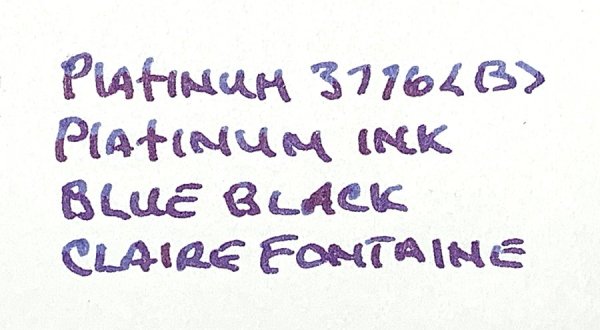 PLATINUM 3776 <B>
PLATINUM INK
BLUE BLACK
CLAIRE FONTAINE